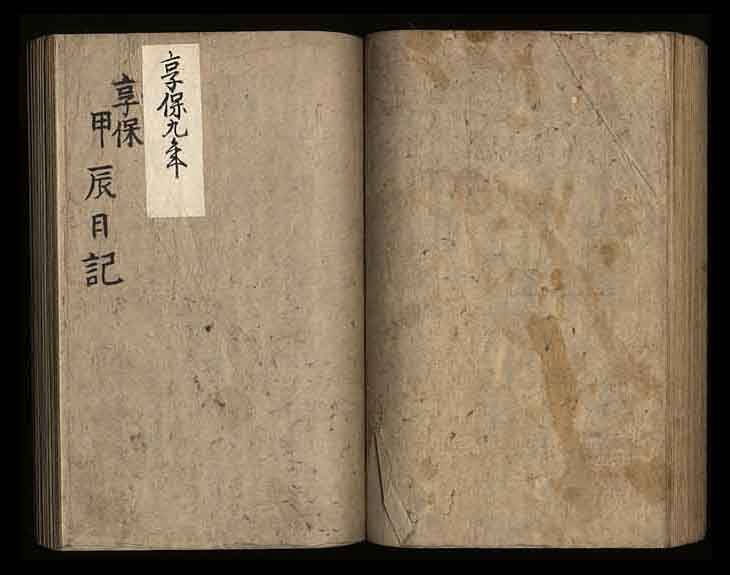 享保九年
享保
甲辰日記